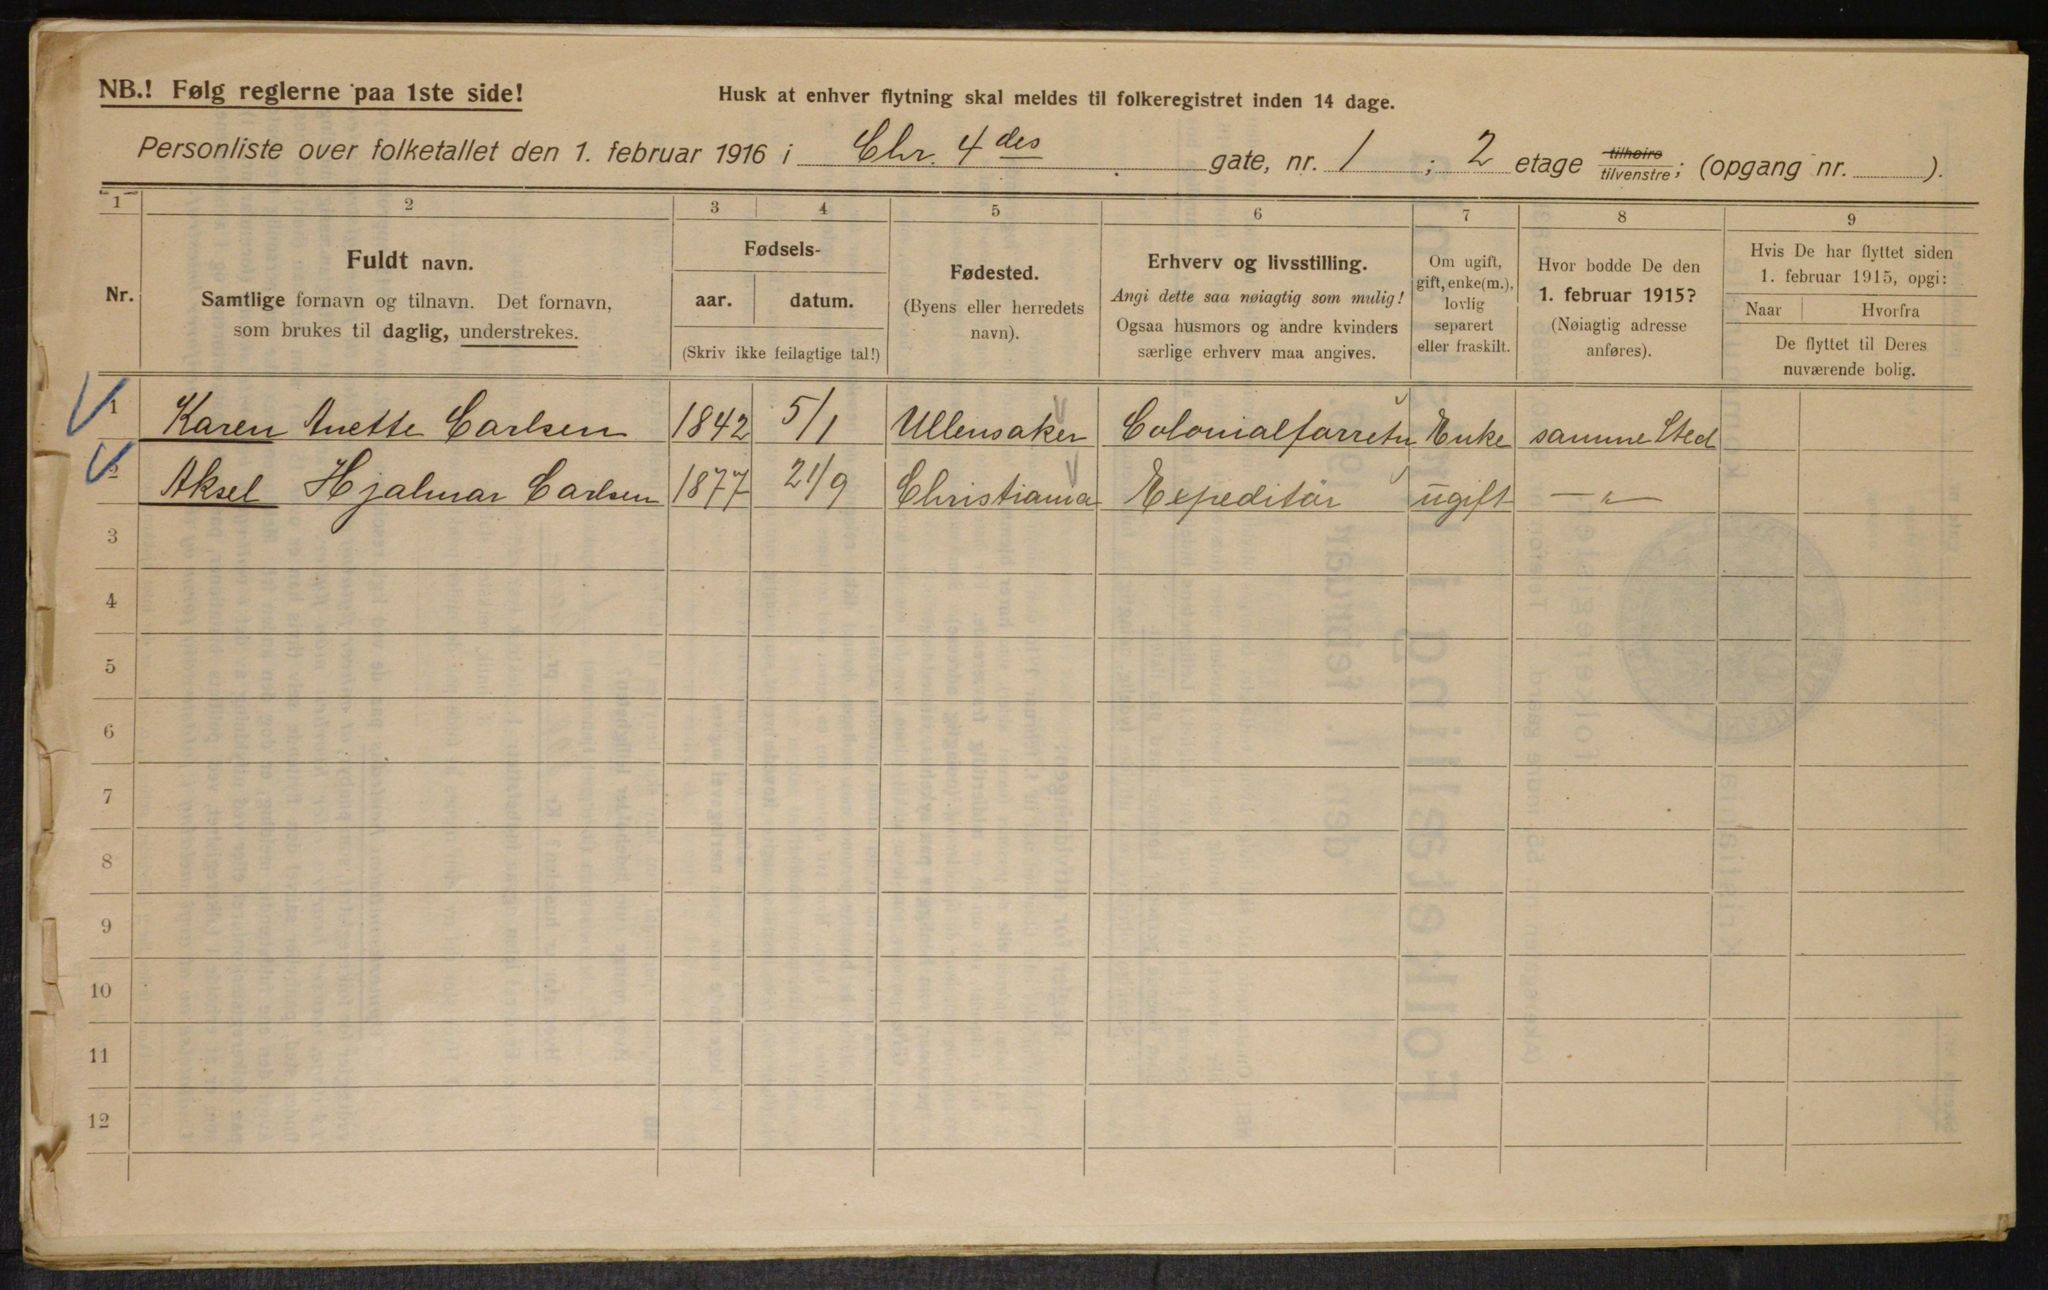 NB.! Følg reglerne paa 1ste side!
Husk at enhver flytning skal meldes til folkeregistret inden 14 dage.
Personliste over folketallet den 1. februar 1916 i Chr. 4des gate, nr. 1 ; 2 etage tilhøire tilvenstre; (opgang nr. ).
1 2 3 4 5 6 7 8 9
Nr.
Fuldt navn.
Samtlige fornavn og tilnavn. Det fornavn,
som brukes til daglig, understrekes.
Fødsels-
aar. datum.
(Skriv ikke feilagtige tal!)
Fødested.
(Byens eller herredets
navn).
Erhverv og livsstilling.
Angi dette saa nøiagtig som mulig!
Ogsaa husmors og andre kvinders
særlige erhverv maa angives.
Om ugift,
gift, enke(m.),
lovlig
separert
eller fraskilt.
Hvor bodde De den
1. februar 1915?
(Nøiagtig adresse
anføres).
Hvis De har flyttet siden
1. februar 1915, opgi:
Naar Hvorfra
De flyttet til Deres
nuværende bolig.
1 Karen Anette Carlsen 1842 5/1 Ullensaker Colonialforretn Enke samme Sted
2 Aksel Hjalmar Carlsen 1877 21/9 Christiania Expeditør ugift — " —
3
4
5
6
7
8
9
10
11
12